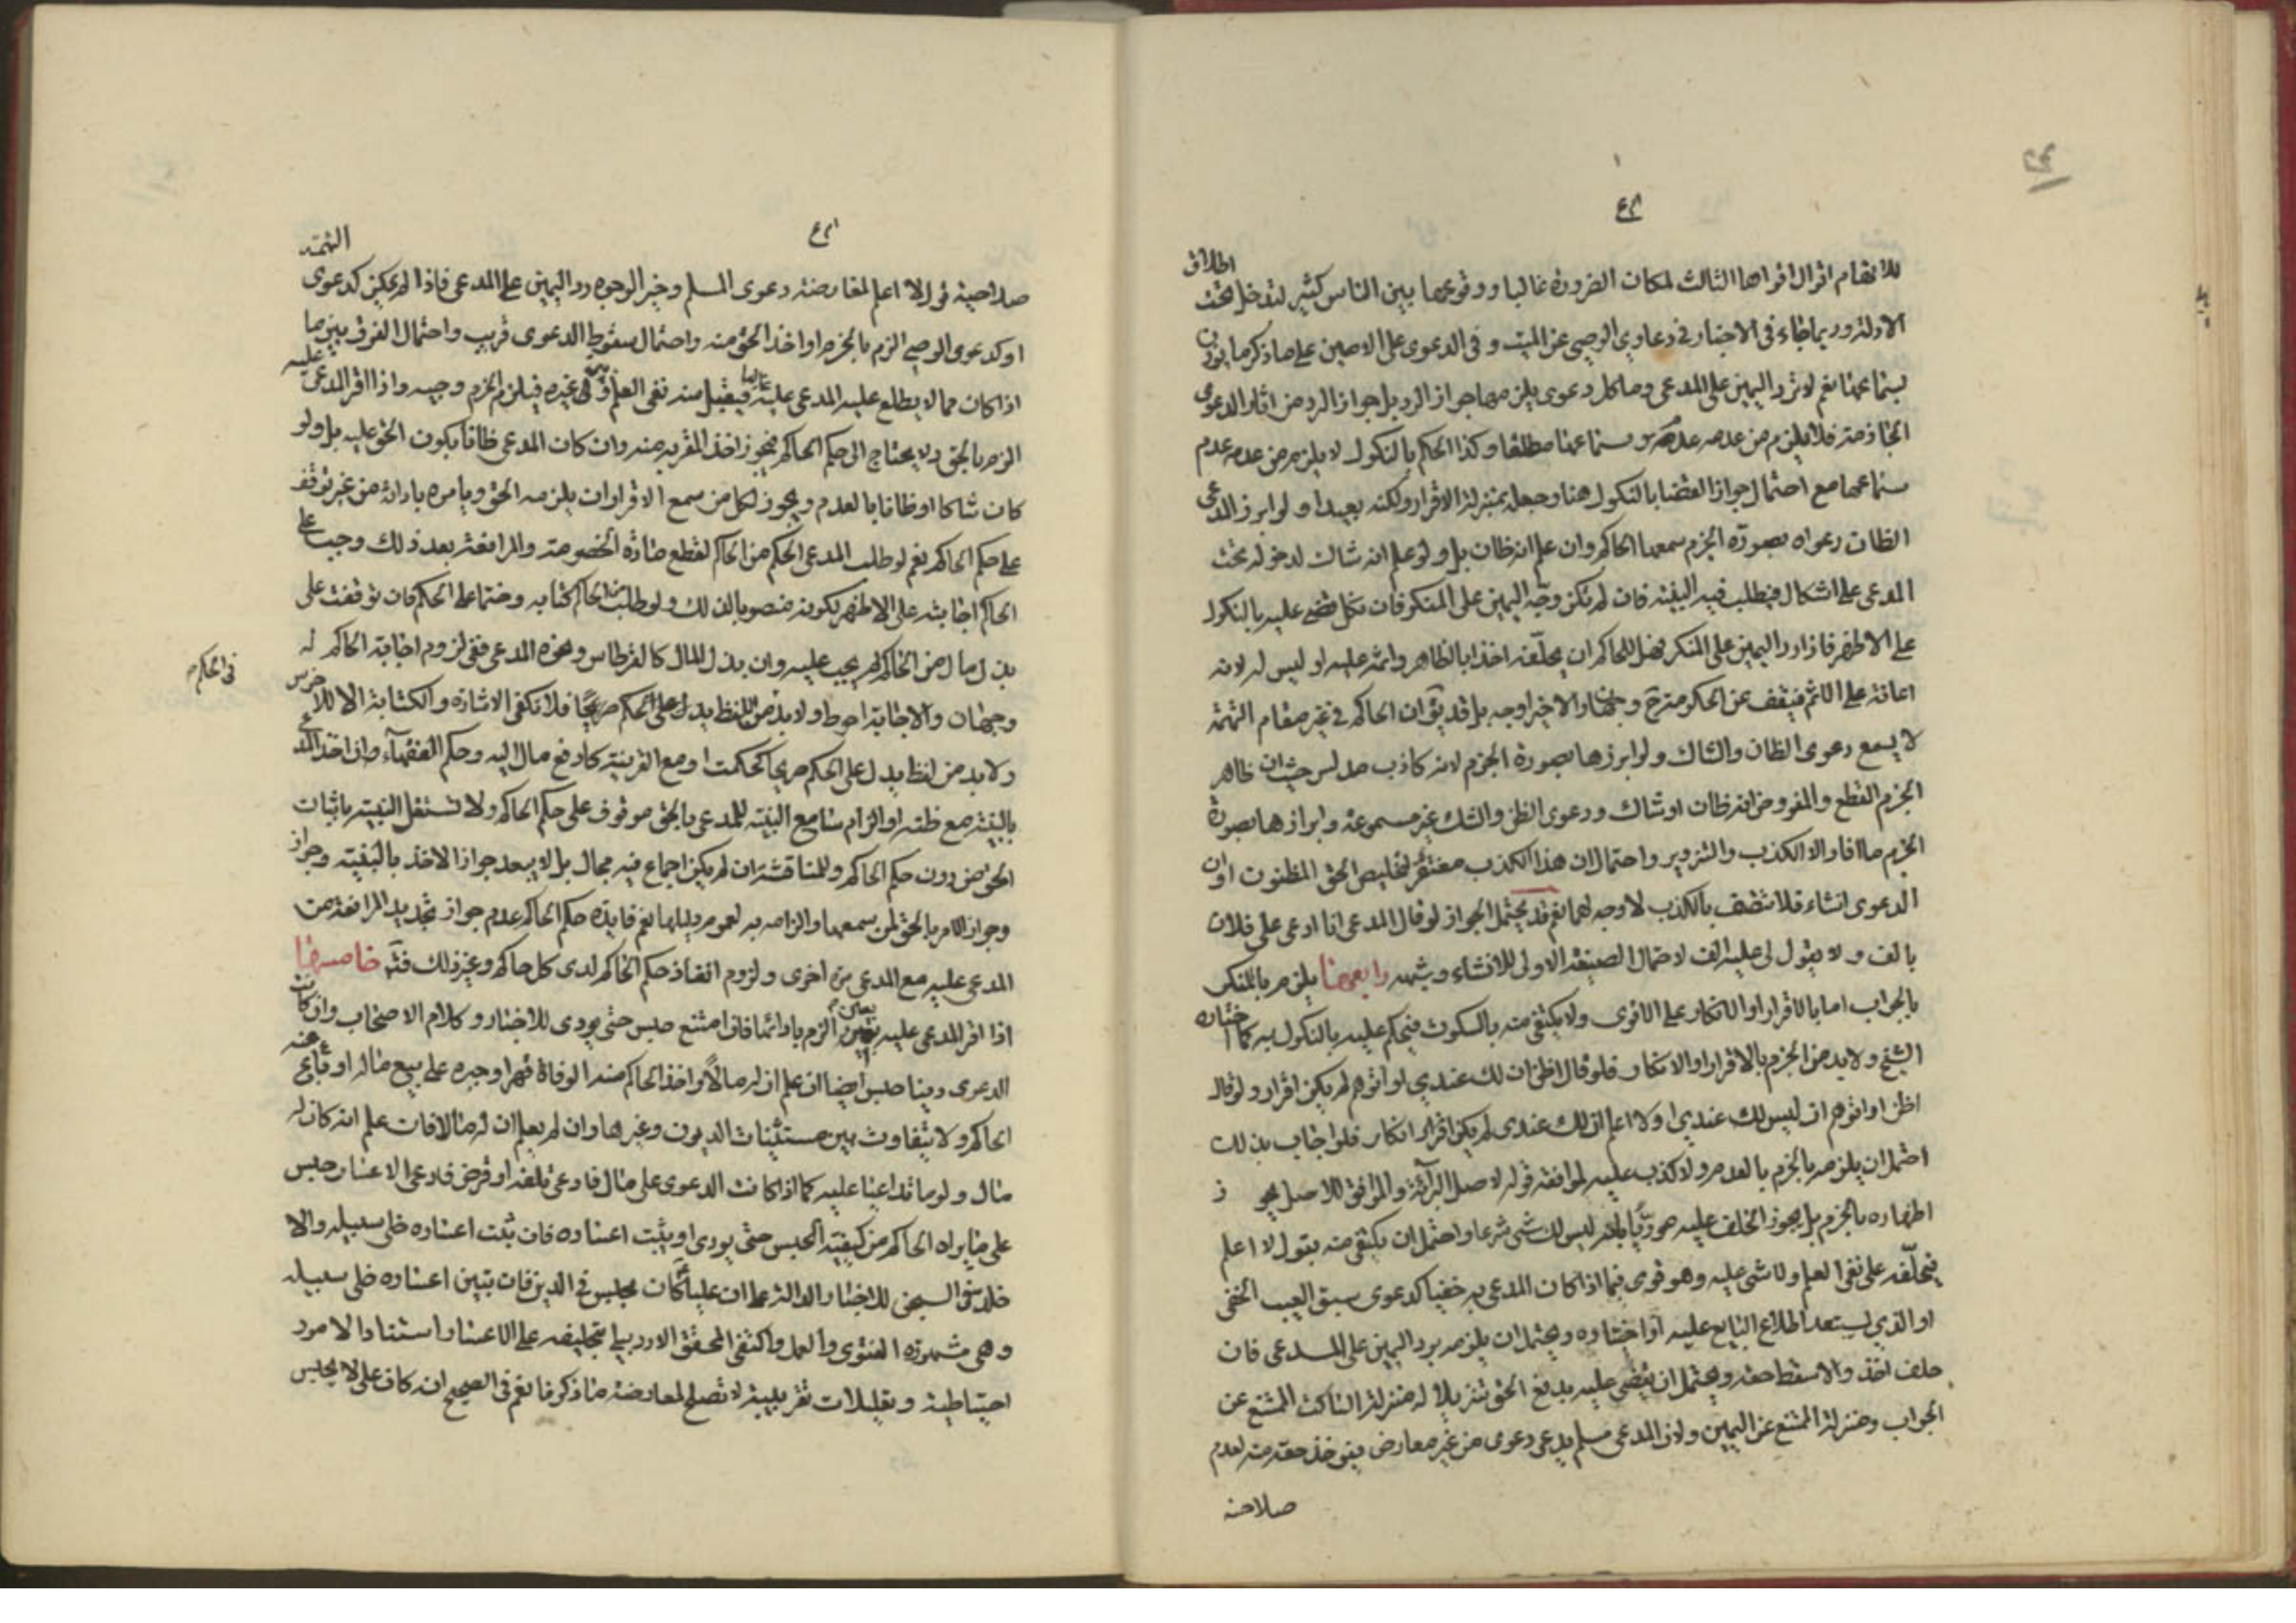 للاتهام اقوال اقواها الثالث لمكان الضرورة غالبا ووقوعها بين الناس كثير لتدخل تحت اطلاق
الادلة وربما جاء في الاخبار في دعاوي الوصي عن الميت و في الدعوى على الامين على ما ذكر ما يؤذن
بسماعها نعم لا ترد اليمين على المدعي وما كل دعوى يلزمها جواز الرد بل جواز الرد من اثار الدعوى
الجازمة فلا يلزم من عدمه عدم سماعها مطلقا وكذا الحكم بالنكول لا يلزم من عدمه عدم
سماعها مع احتمال جواز القضا بالنكول هنا وجعله بمنزلة الاقرار ولكنه بعيد او لو ابرز المدعي
الظان دعواه بصورة الجزم سمعها الحاكم وان علم انه ظان بل ولو علم انه شاك لدخوله تحت
المدعي على اشكال فيطلب فيه البينة فان لم تكن وجه اليمين على المنكر فان نكل قضى عليه بالنكول
على الاظهر فاذا رد اليمين على المنكر فهل للحاكم ان يحلّفه اخذا بالظاهر واثمه عليه او ليس له لانه
اعانة على الاثم فيقف عن الحكم مترح وجهان والاخير اوجه بل قد يق ان الحاكم في غير مقام التهمة
لا يسمع دعوى الظان والشاك ولو ابرزها بصورة الجزم لانه كاذب مدلس حيث ان ظاهر
الجزم القطع والمفروض انه ظان او شاك ودعوى الظن والشك غير مسموعة وابرازها بصورة
الجزم ما افاد الا الكذب والتزوير واحتمال ان هذا الكذب مغتفر لتخليص الحق المظنون او ان
الدعوى انشاء فلا تتصف بالكذب لا وجه لهما نعم قد يحتمل الجواز لو قال المدعي انا ادعي على فلان
بالف و لا يقول لي عليه الف لاحتمال الصيغة الاولى للانشاء وشبهه رابعها يلزم بالمنكر
بالجواب اما بالاقرار او الانكار على الاقوى ولا يكتفى منه بالسكوت فيحكم عليه بالنكول به كما اختاره
الشيخ ولا بد من الجزم بالاقرار او الانكار فلو قال اظن ان لك عندي او اتوهم لم يكن اقرار ولو قال
اظن او اتوهم ان ليس لك عندي او لا اعلم ان لك عندي لم يكن اقرار انكار فلو اجاب بذلك
احتمل ان يلزمه بالجزم بالعدم ولا كذب عليه لموافقة قوله لاصل البرآئة والموافق للاصل يجو ز
اظهاره بالجزم بل يجوز الحلف عليه مورّيا بانه ليس لك شئ شرعا واحتمل ان يكتفى منه بقول لا اعلم
فيحلّفه على نفي العلم ولا شئ عليه وهو قوى فيما اذا كان المدعى به خفيا كدعوى سبق العيب الخفي
او الذي يستبعد اطلاع البايع عليه او اختاره ويحتمل ان يلزمه برد اليمين على المدعي فان
حلف اخذ والا سقط حقه ويحتمل ان يقضى عليه بدفع الحق تنزيلا له منزلة الساكت الممتنع عن
الجواب ومنزلة الممتنع عن اليمين ولان المدعي مسلم يدعي دعوى من غير معارض فيؤخذ حقه منه لعدم
صلاحية
صلاحية قول لا اعلم لمعارضة دعوى المسلم وخير الوجوه رد اليمين على المدعي فاذا لم يمكن كدعوى التهمة
او كدعوى الوصي الزم بالجزم او اخذ الحق منه واحتمال سقوط الدعوى قريب واحتمال الفرق بين ما
اذا كان مما لا يطلع عليه المدعى عليه غالبا فيقبل منه نفي العلم وبين غيره فيلزم الجزم وجيه واذا اقر المدعى عليه
الزم بالحق ولا يحتاج الى حكم الحاكم فيجوز اخذ المقر به منه وان كان المدعي ظانا بكون الحق عليه بل ولو
كان شاكا او ظانا بالعدم ويجوز لكل من سمع الاقرار ان يلزمه الحق ويامره بادائه من غير توقف
على حكم الحاكم نعم لو طلب المدعي الحكم من الحاكم لقطع مادة الخصومة والمرافعة بعد ذلك وجب على
الحاكم اجابته على الاظهر لكونه منصوبا لذلك ولو طلب من الحاكم كتابه وختما على الحكم فان توقفت على
بذل مال من الحاكم لم يجب عليه وان بذل المال كالقرطاس ونحوه المدعي ففي لزوم اجابة الحاكم له
وجهان والاجابة احوط ولا بد من اللفظ يدل على الحكم صريحا فلا تكفى الاشارة والكتابة الا للاخرس
في الحكم
ولا بد من لفظ يدل على الحكم صريحا كحكمت او مع القرينة كادفع مال اليه وحكم الفقهآء وان اخذ المدعي
بالبينة مع ظنه او الزام سامع البينة للمدعي بالحق موقوف على حكم الحاكم ولا تستقل البينة باثبات
الحق من دون حكم الحاكم وللمناقشة ان لم يكن اجماع فيه مجال بل لا يبعد جواز الاخذ بالبينة وجواز
وجواز الامر بالحق لمن سمعها والزامه به لعموم دليلها نعم فايدة حكم الحاكم عدم جواز تجديد المرافعة من
المدعى عليه مع المدعي مرة اخرى ولزوم انفاذ حكم الحاكم لدى كل حاكم وغير ذلك فتٓ خامسها
اذا اقر المدعى عليه بعين الزم بادائها فان امتنع حبس حتى يودى للاخبار وكلام الاصحاب وان كانت
الدعوى دينا حبس ايضا ان علم ان له مالاً او اخذ الحاكم منه الوفاة قهرا وجبره على بيع ماله او باع عنه
الحاكم ولا يتفاوت بين مستثنيات الديون وغيرها وان لم يعلم ان له مالا فان علم انه كان له
مال ولو ما تداعيا عليه كما اذا كانت الدعوى على مال فادعى تلفه او قرض فادعى الاعسار حبس
على ما يراه الحاكم من كيفية الحبس حتى يودى او يثبت اعساره فان ثبت اعساره خلى سبيله والا
خلد في السجن للاخبار الدالة على ان علياً كان يحبس في الدين فان تبين اعساره خلى سبيله
وهي مشهورة الفتوى والعمل واكتفى المحقق الاردبيلي بتحليفه على الاعسار استنادا لامور
احتياطية وتعليلات تقريبية لا تصلح لمعارضة ما ذكرنا نعم في الصحيح ان كان علي لا يحبس